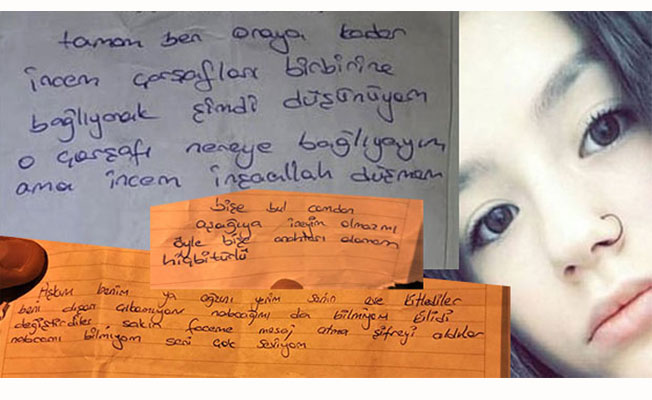 tamam ben oraya kadar
incem çarşafları birbirine
bağlıyarak şimdi düşünüyom
o çarşafı nereye bağlıyayım
ama incem inşaallah düşmem
bize bul camdan
aşağıya ineyim olmazmı
öyle bize anahtarı alamam
hiçbitürlü
Aşkım benim ya ağzını yerim senin eve kitlediler
beni dışarı çıkamıyom nabacağımı da bilmiyom kilidi
değiştirdiler, sakın feceme mesaj atma şifreyi aldılar
nabcamı bilmiyom seni çok seviyom